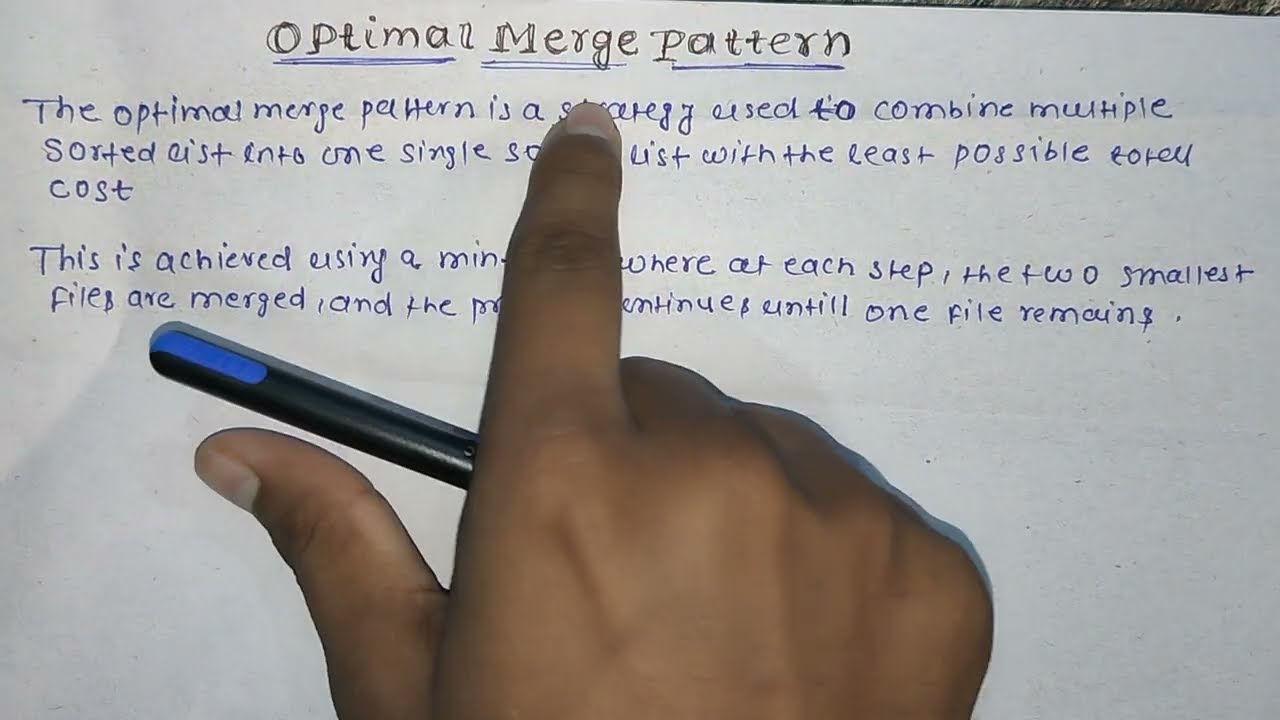 Optimal Merge Pattern
The optimal merge pattern is a strategy used to combine multiple
Sorted list into one single list with the least possible total
cost
This is achieved using a min- where at each step, the two smallest
files are merged, and the untill one file remains.